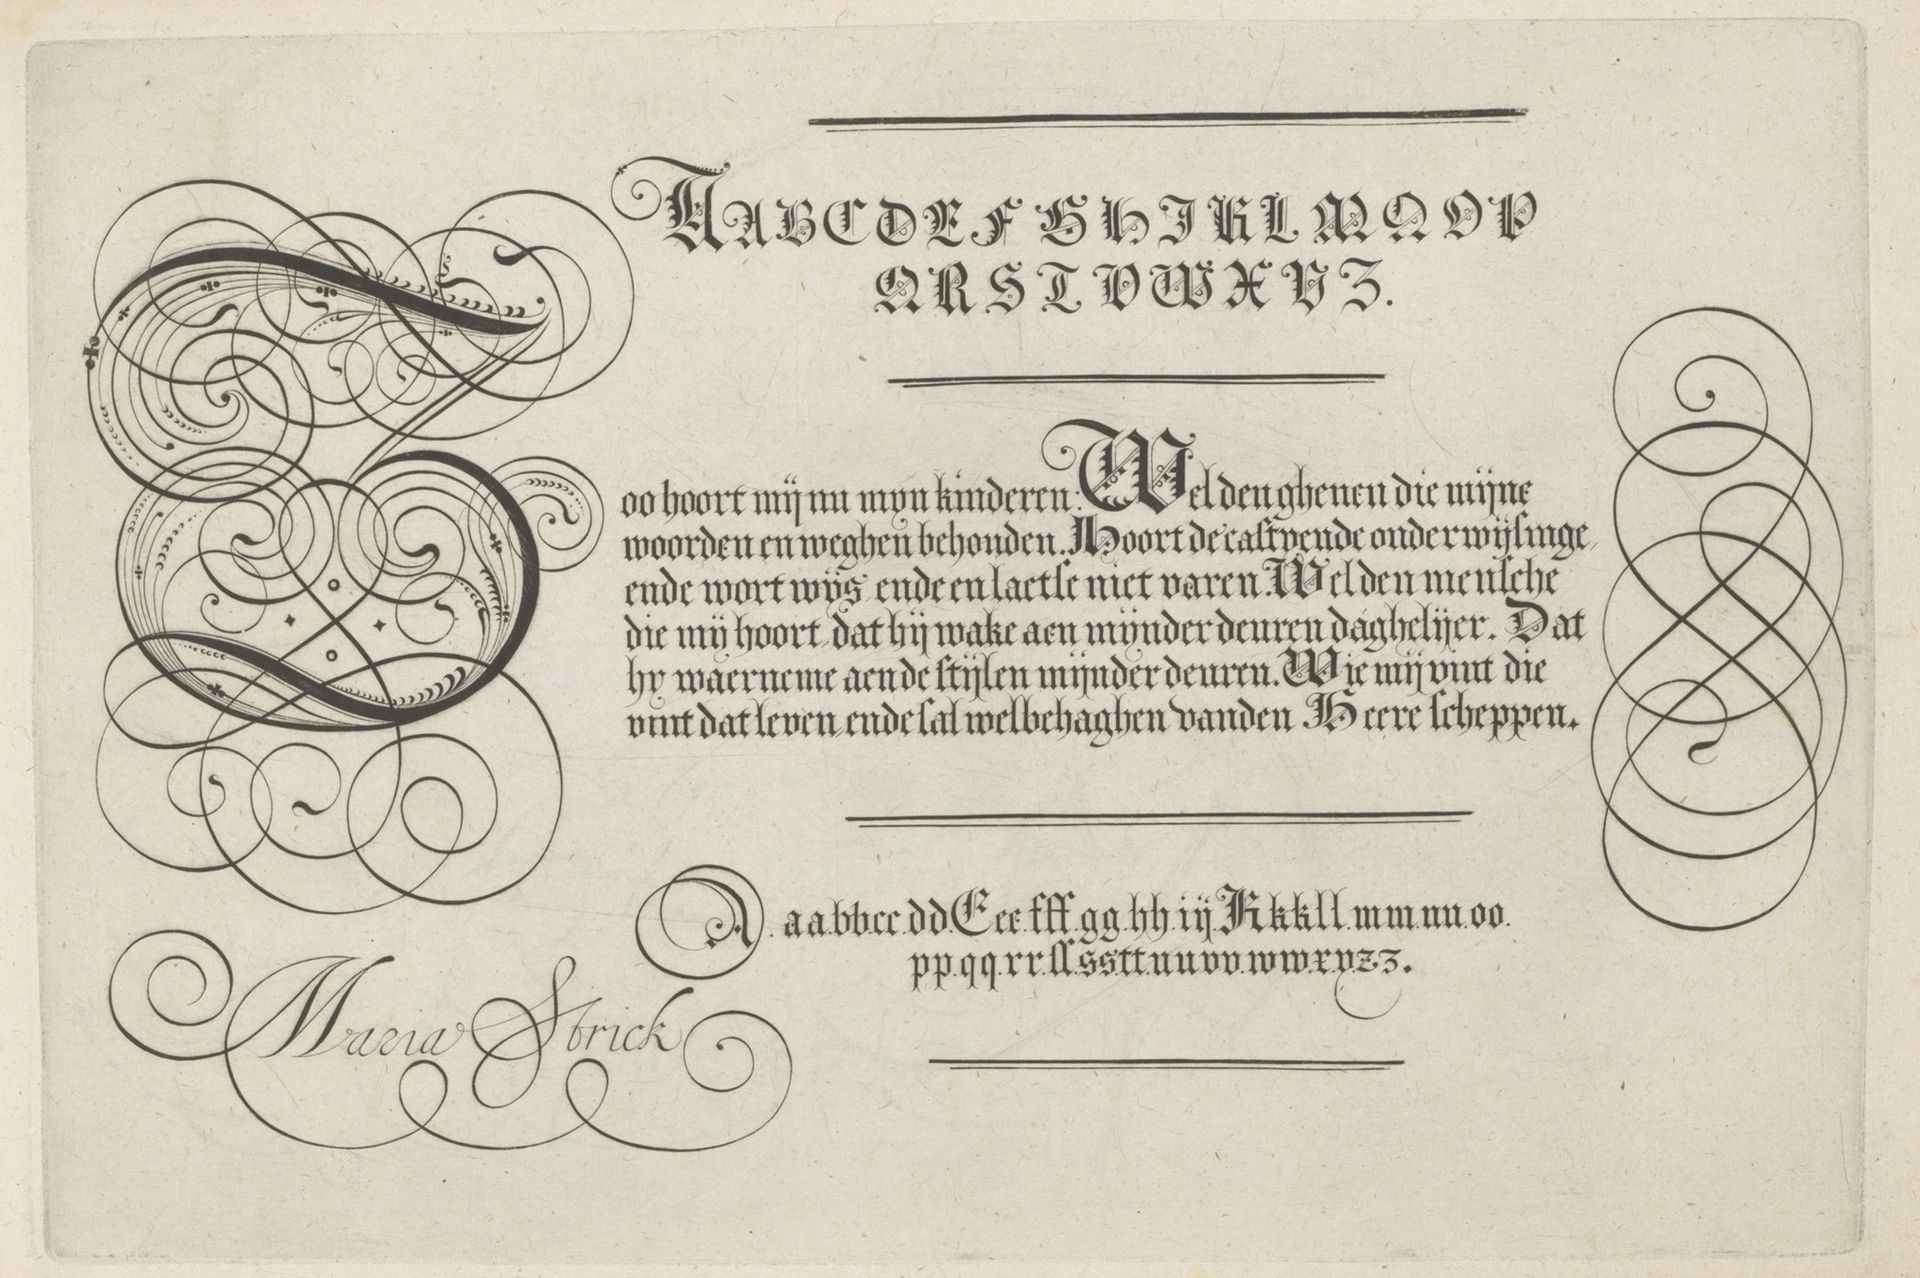 AABCDEFGHIKLMNOP
QRSTVWXYZ.
Zoo hoort mij nu myn kinderen: Wel den ghenen die mijne
woorden en weghen behouden. Hoort de castyende onderwijsinge,
ende wort wijs ende en laetse niet varen. Wel den mensche
die mij hoort, dat hij wake aen mijnder deuren daghelijcx. Dat
hy waerneme aen de stijlen mijnder deuren. Wie mij vint die
vint dat leven, ende sal welbehaghen vanden Heere scheppen.
A. a a.b b.c c.d d.E e e.f f f.g g.h h.i ij.K k k.l l.m m.n n.o o.
p p.q q.r r.ſſ.s s t t.u u v v.w w.x.y.z z.
Maria Strick